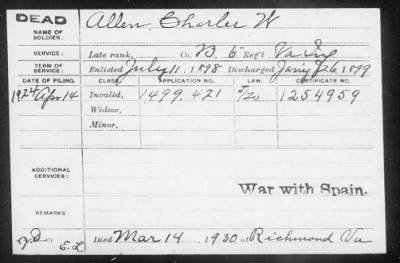 DEAD
NAME OF SOLDIER: Allen, Charles W
SERVICE: Late rank, Co. B, 6" Reg't Va Inf
TERM OF SERVICE: Enlisted July 11, 1898 Discharged Jan'y 26, 1899
DATE OF FILING. CLASS. APPLICATION NO. LAW. CERTIFICATE NO.
1924 Apr 14 Invalid, 1499.421 1254959
Widow,
Minor,
ADDITIONAL SERVICES:
War with Spain.
REMARKS:
E.L. Died Mar 14, 1930, at Richmond Va